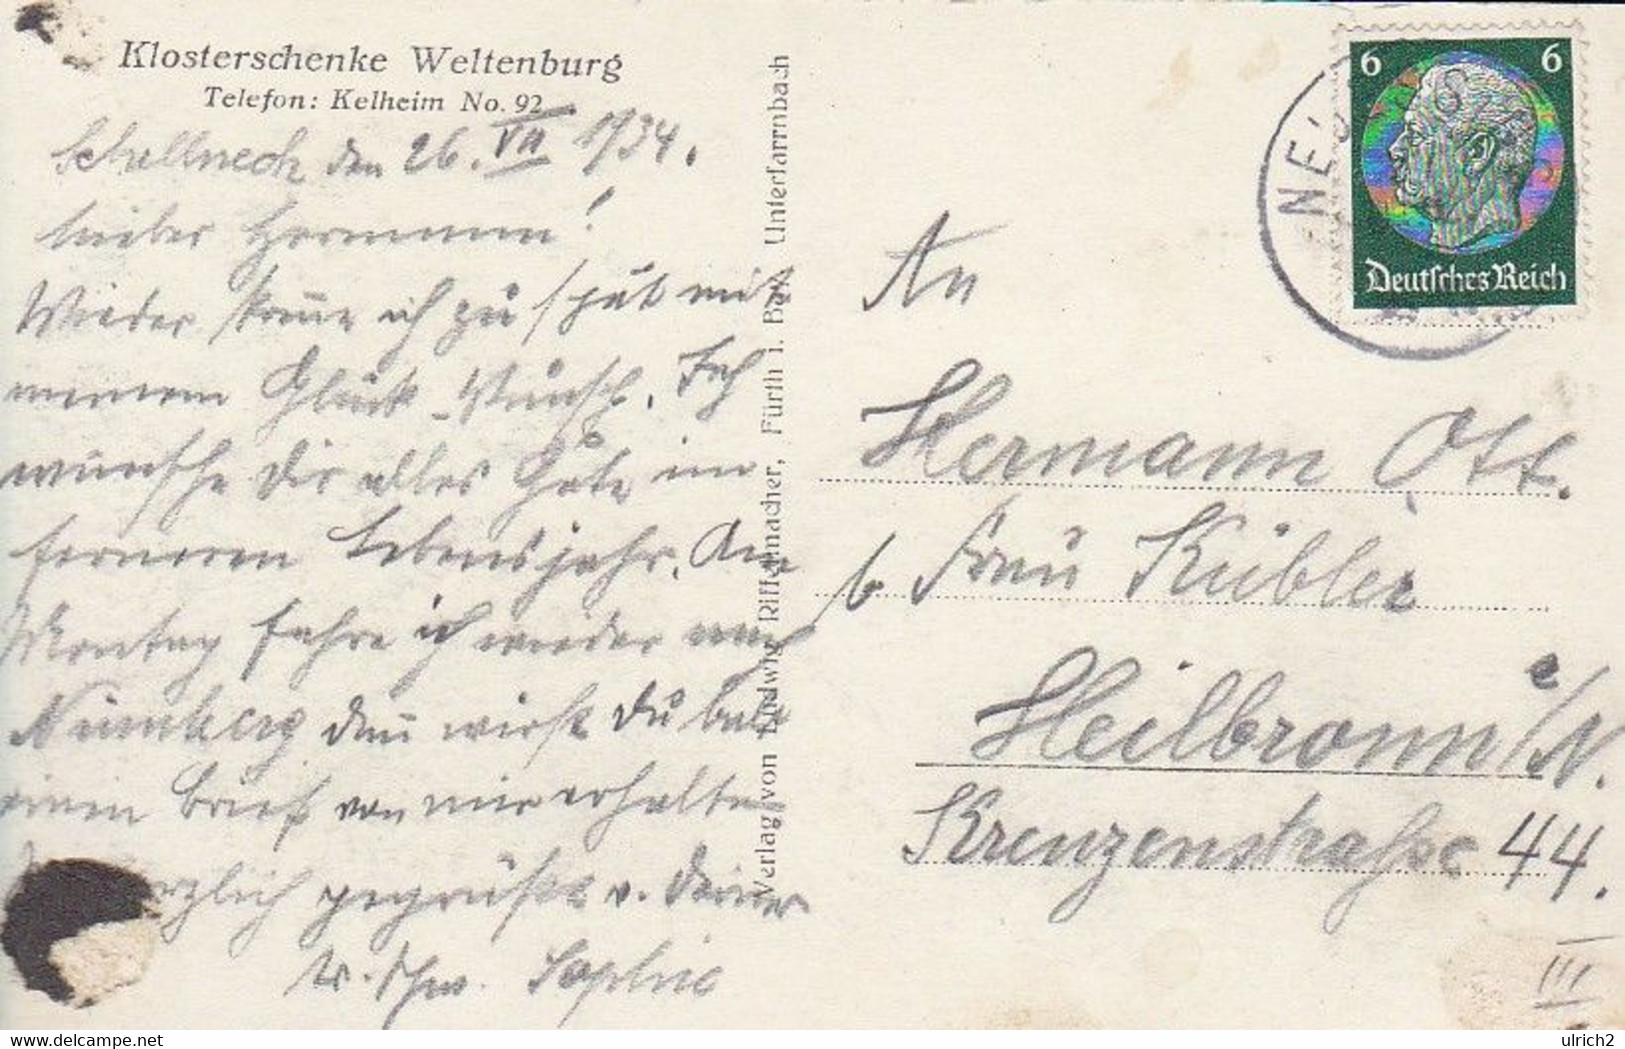 Klosterschenke Weltenburg
Telefon: Kelheim No. 92
Schellneck den 26. VII 1934.
Lieber Hermann!
Wieder komme ich zu spät mit
meinem Glück-Wunsch. Ich
wünsche Dir alles Gute im
ferneren Lebensjahr. Am
Montag fahre ich wieder nach
Nürnberg dann wirst Du bald
einen Brief von mir erhalten
Herzlich gegrüßt v. Deiner
Schw. Sophie
Verlag von Ludwig Riffelmacher, Fürth i. Bay., Unterfarrnbach
6 6
Deutsches Reich
NEU
An
Hermann Ott.
b/ Frau Kübler
Heilbronn a/N.
Kreuzenstraße 44.
III
delcampe.net
ulrich2